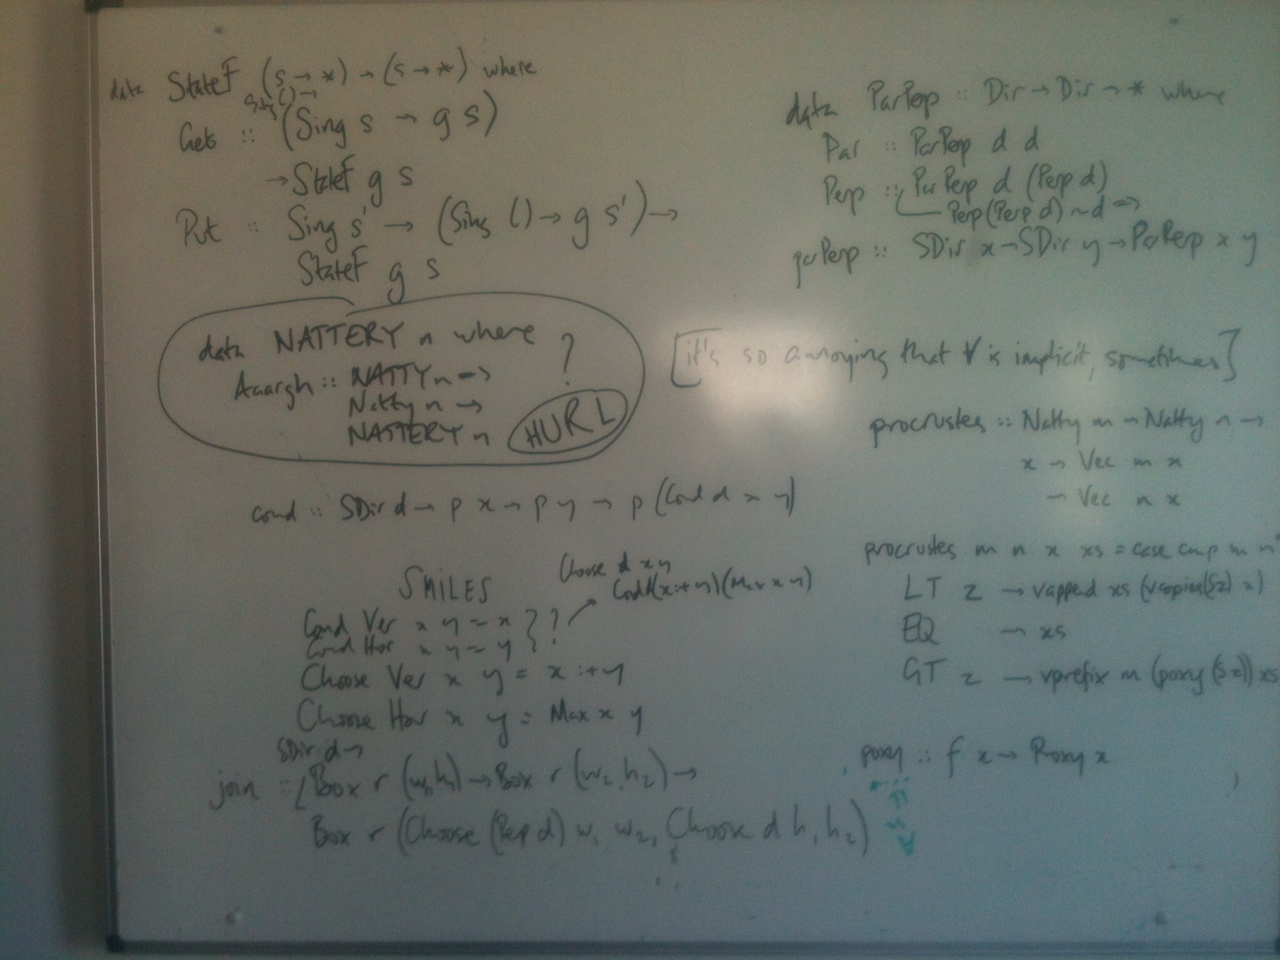 data StateF (s → *) → (s → *) where
Sing () →
Get :: (Sing s → g s)
→ StateF g s
Put :: Sing s' → (Sing () → g s') →
StateF g s
data NATTERY n where
Aaargh :: NATTY n =>
Natty n →
NATTERY n
?
HURL
cond :: SDir d → p x → p y → p (Cond d x y)
SMILES
Choose d x y
Cond d (x :+ y) (Max x y)
Cond Ver x y = x } ?
Cond Hor x y = y }
Choose Ver x y = x :+ y
Choose Hor x y = Max x y
SDir d →
join :: Box r (w₁,h₁) → Box r (w₂,h₂) →
Box r (Choose (Perp d) w₁ w₂, Choose d h₁ h₂)
data ParPerp :: Dir → Dir → * where
Par :: ParPerp d d
Perp :: ParPerp d (Perp d)
Perp (Perp d) ~ d =>
parPerp :: SDir x → SDir y → ParPerp x y
[it's so annoying that ∀ is implicit, sometimes]
procrustes :: Natty m → Natty n →
x → Vec m x
→ Vec n x
procrustes m n x xs = case cmp m n
LT z → vappend xs (vcopies (S z) x)
EQ → xs
GT z → vprefix m (poxy (S z)) xs
poxy :: f x → Proxy x